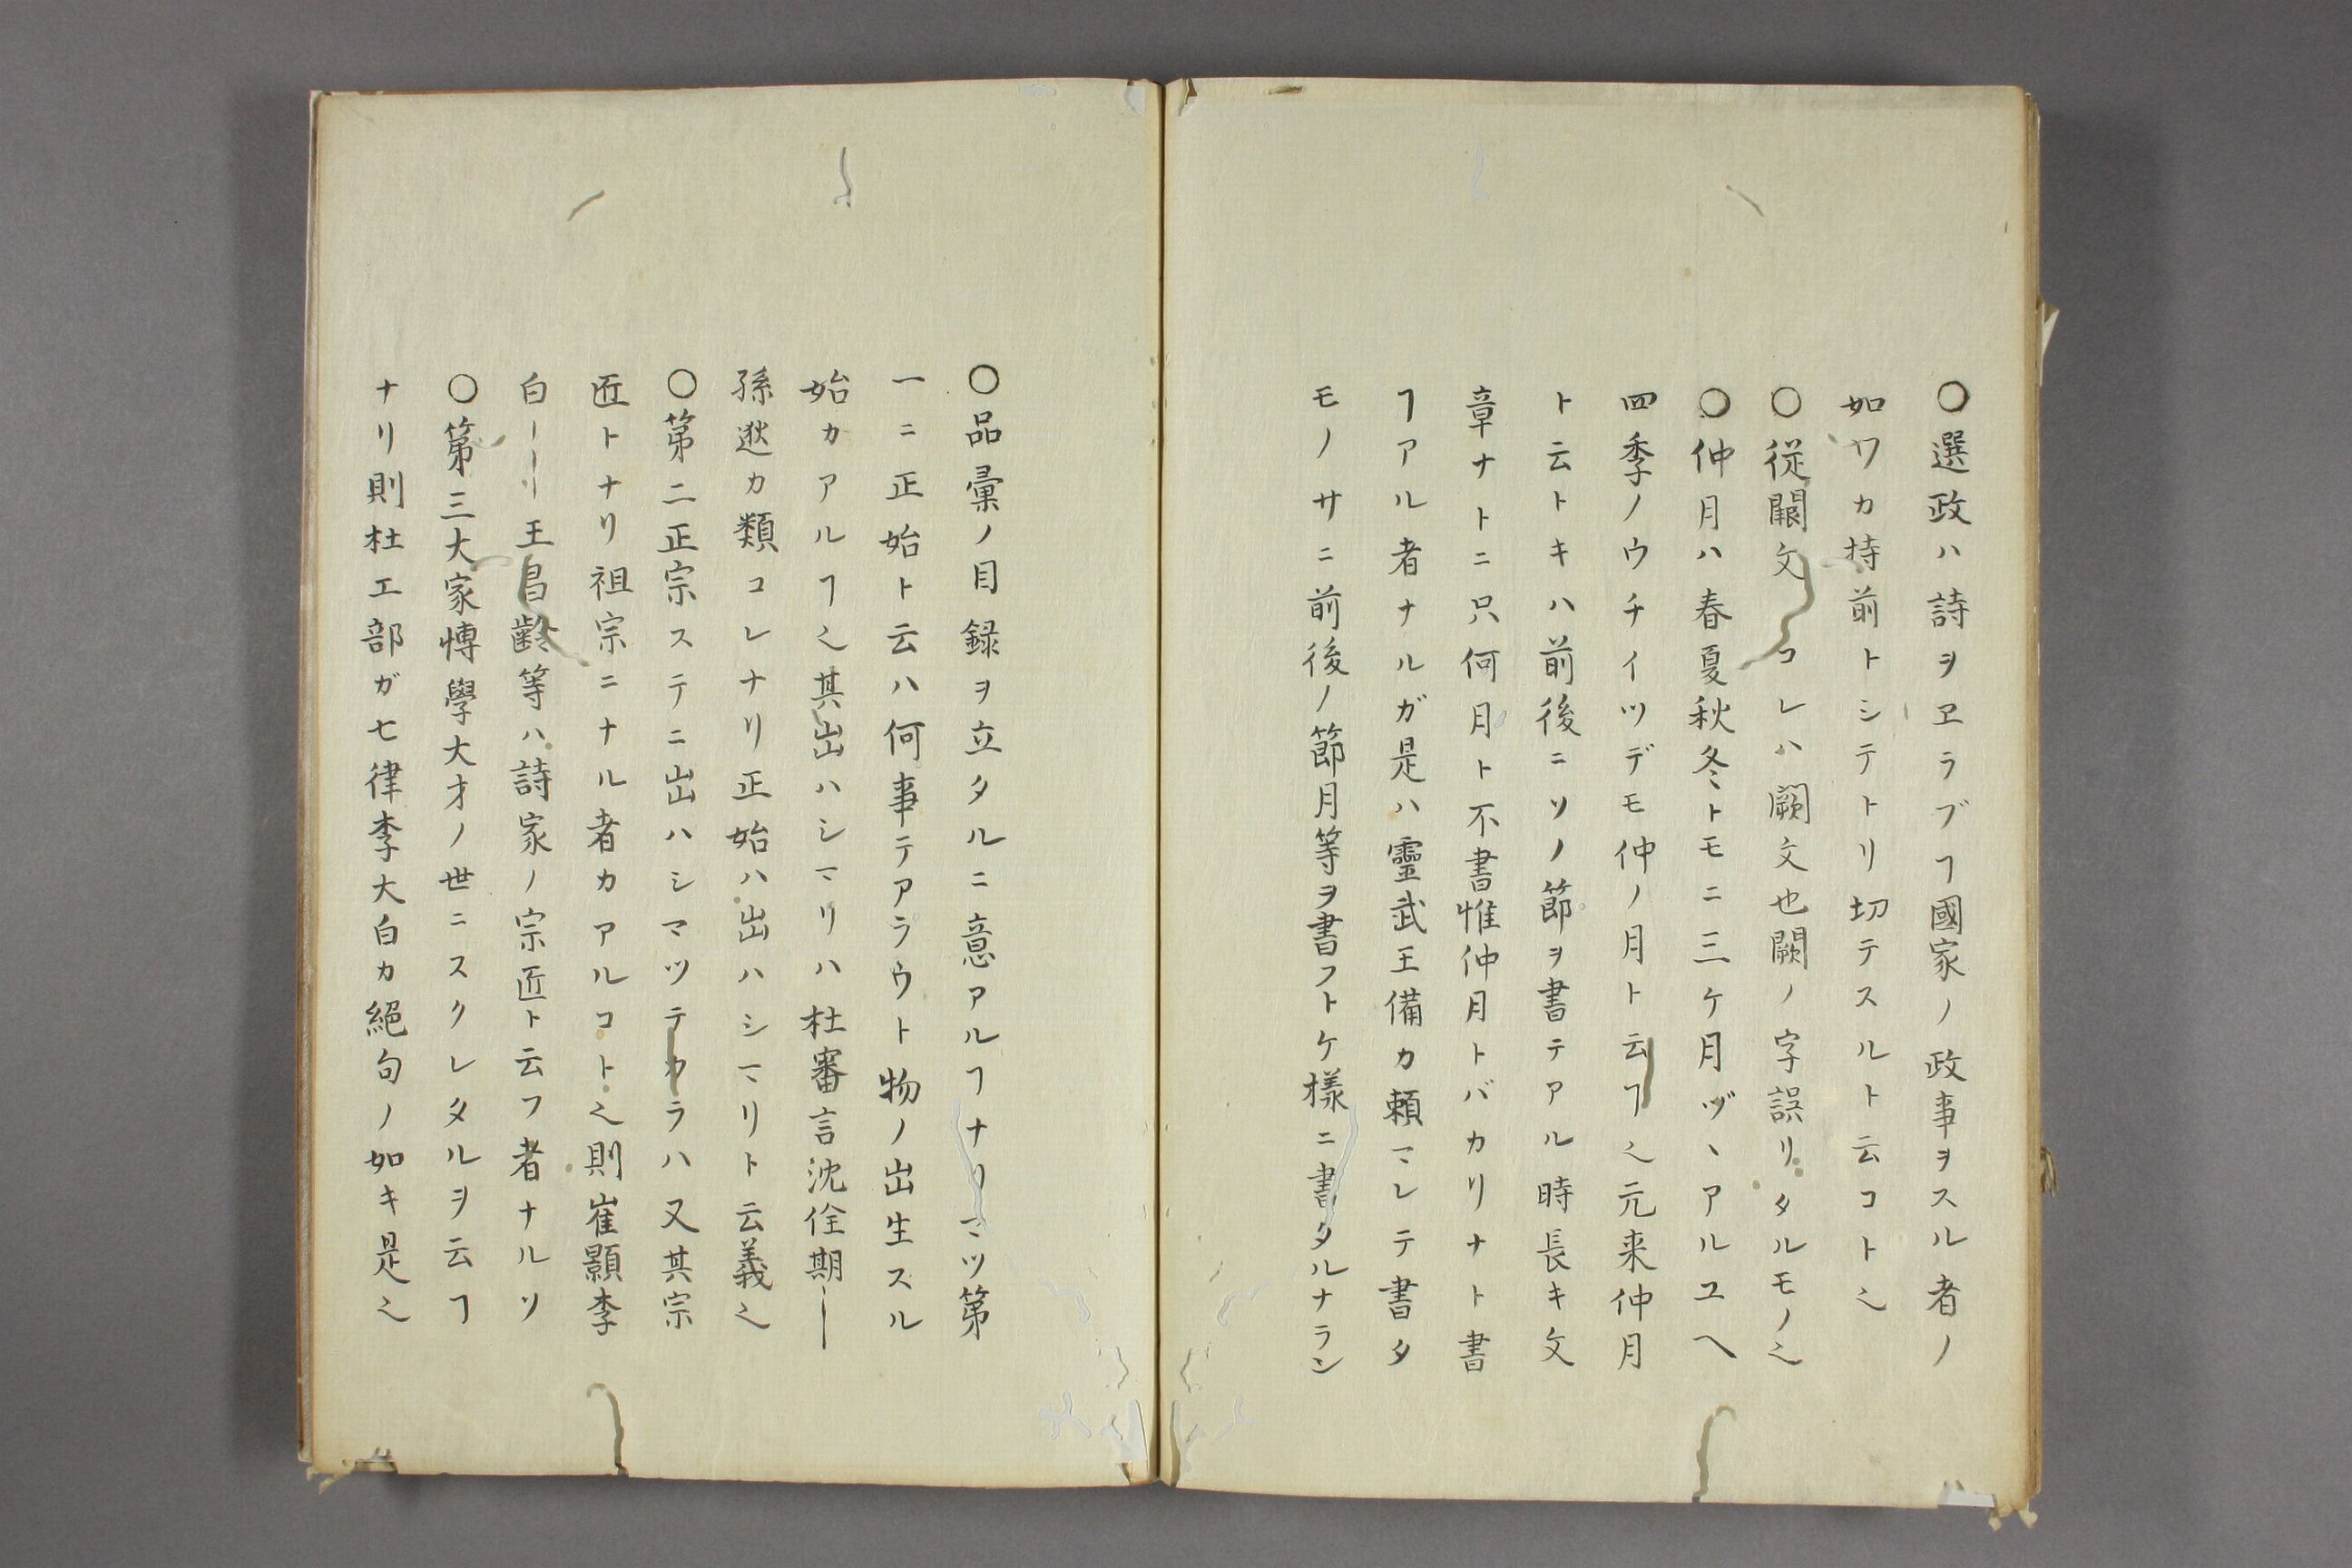 ○選政ハ詩ヲヱラブヿ國家ノ政事ヲスル者ノ
如ワカ持前トシテトリ切テスルト云コト也
○従闕文コレハ闕文也闕ノ字誤リタルモノ也
○仲月ハ春夏秋冬トモニ三ケ月ヅヽアルユヘ
四季ノウチイツデモ仲ノ月ト云ヿ也元来仲月
ト云トキハ前後ニソノ節ヲ書テアル時長キ文
章ナトニ只何月ト不書惟仲月トバカリナト書
ヿアル者ナルガ是ハ靈武王備カ頼マレテ書タ
モノサニ前後ノ節月等ヲ書フトケ様ニ書タルナラン
○品彙ノ目録ヲ立タルニ意アルヿナリマツ第
一ニ正始ト云ハ何事テアラウト物ノ出生スル
始カアルヿ也其出ハシマリハ杜審言沈佺期―
孫逖カ類コレナリ正始ハ出ハシマリト云義也
○第二正宗ステニ出ハシマツテカラハ又其宗
匠トナリ祖宗ニナル者カアルコト也則崔顥李
白―――王昌齡等ハ詩家ノ宗匠ト云フ者ナルソ
○第三大家博學大才ノ世ニスクレタルヲ云ヿ
ナリ則杜工部ガ七律李大白カ絕句ノ如キ是也